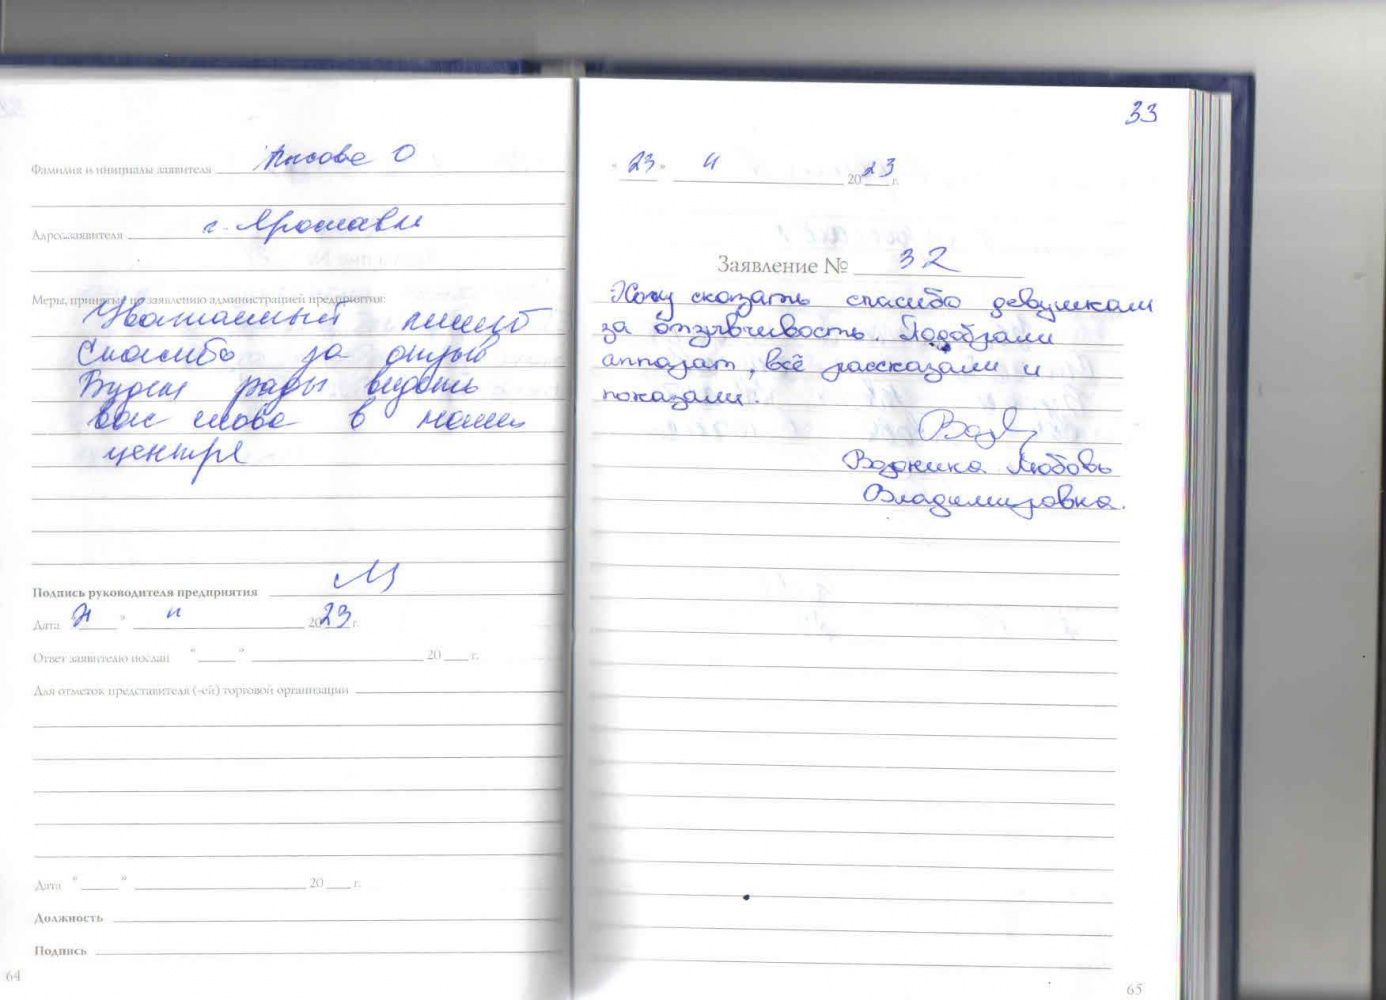 Фамилия и инициалы заявителя Лисова О
Адрес заявителя г. Ярославль
Меры, принятые по заявлению администрацией предприятия:
Уважаемый
Спасибо за отзыв
Будем рады видеть
вас снова в нашем
центре
Подпись руководителя предприятия
Дата " " 20 23 г.
Ответ заявителю послан " " 20 г.
Для отметок представителя (-ей) торговой организации
Дата " " 20 г.
Должность
Подпись
64
33
" 23 " 11 20 23 г.
Заявление № 32
Хочу сказать спасибо девушкам
за отзывчивость. Подобрали
аппарат, всё рассказали и
показали.
Любовь
Владимировна.
65